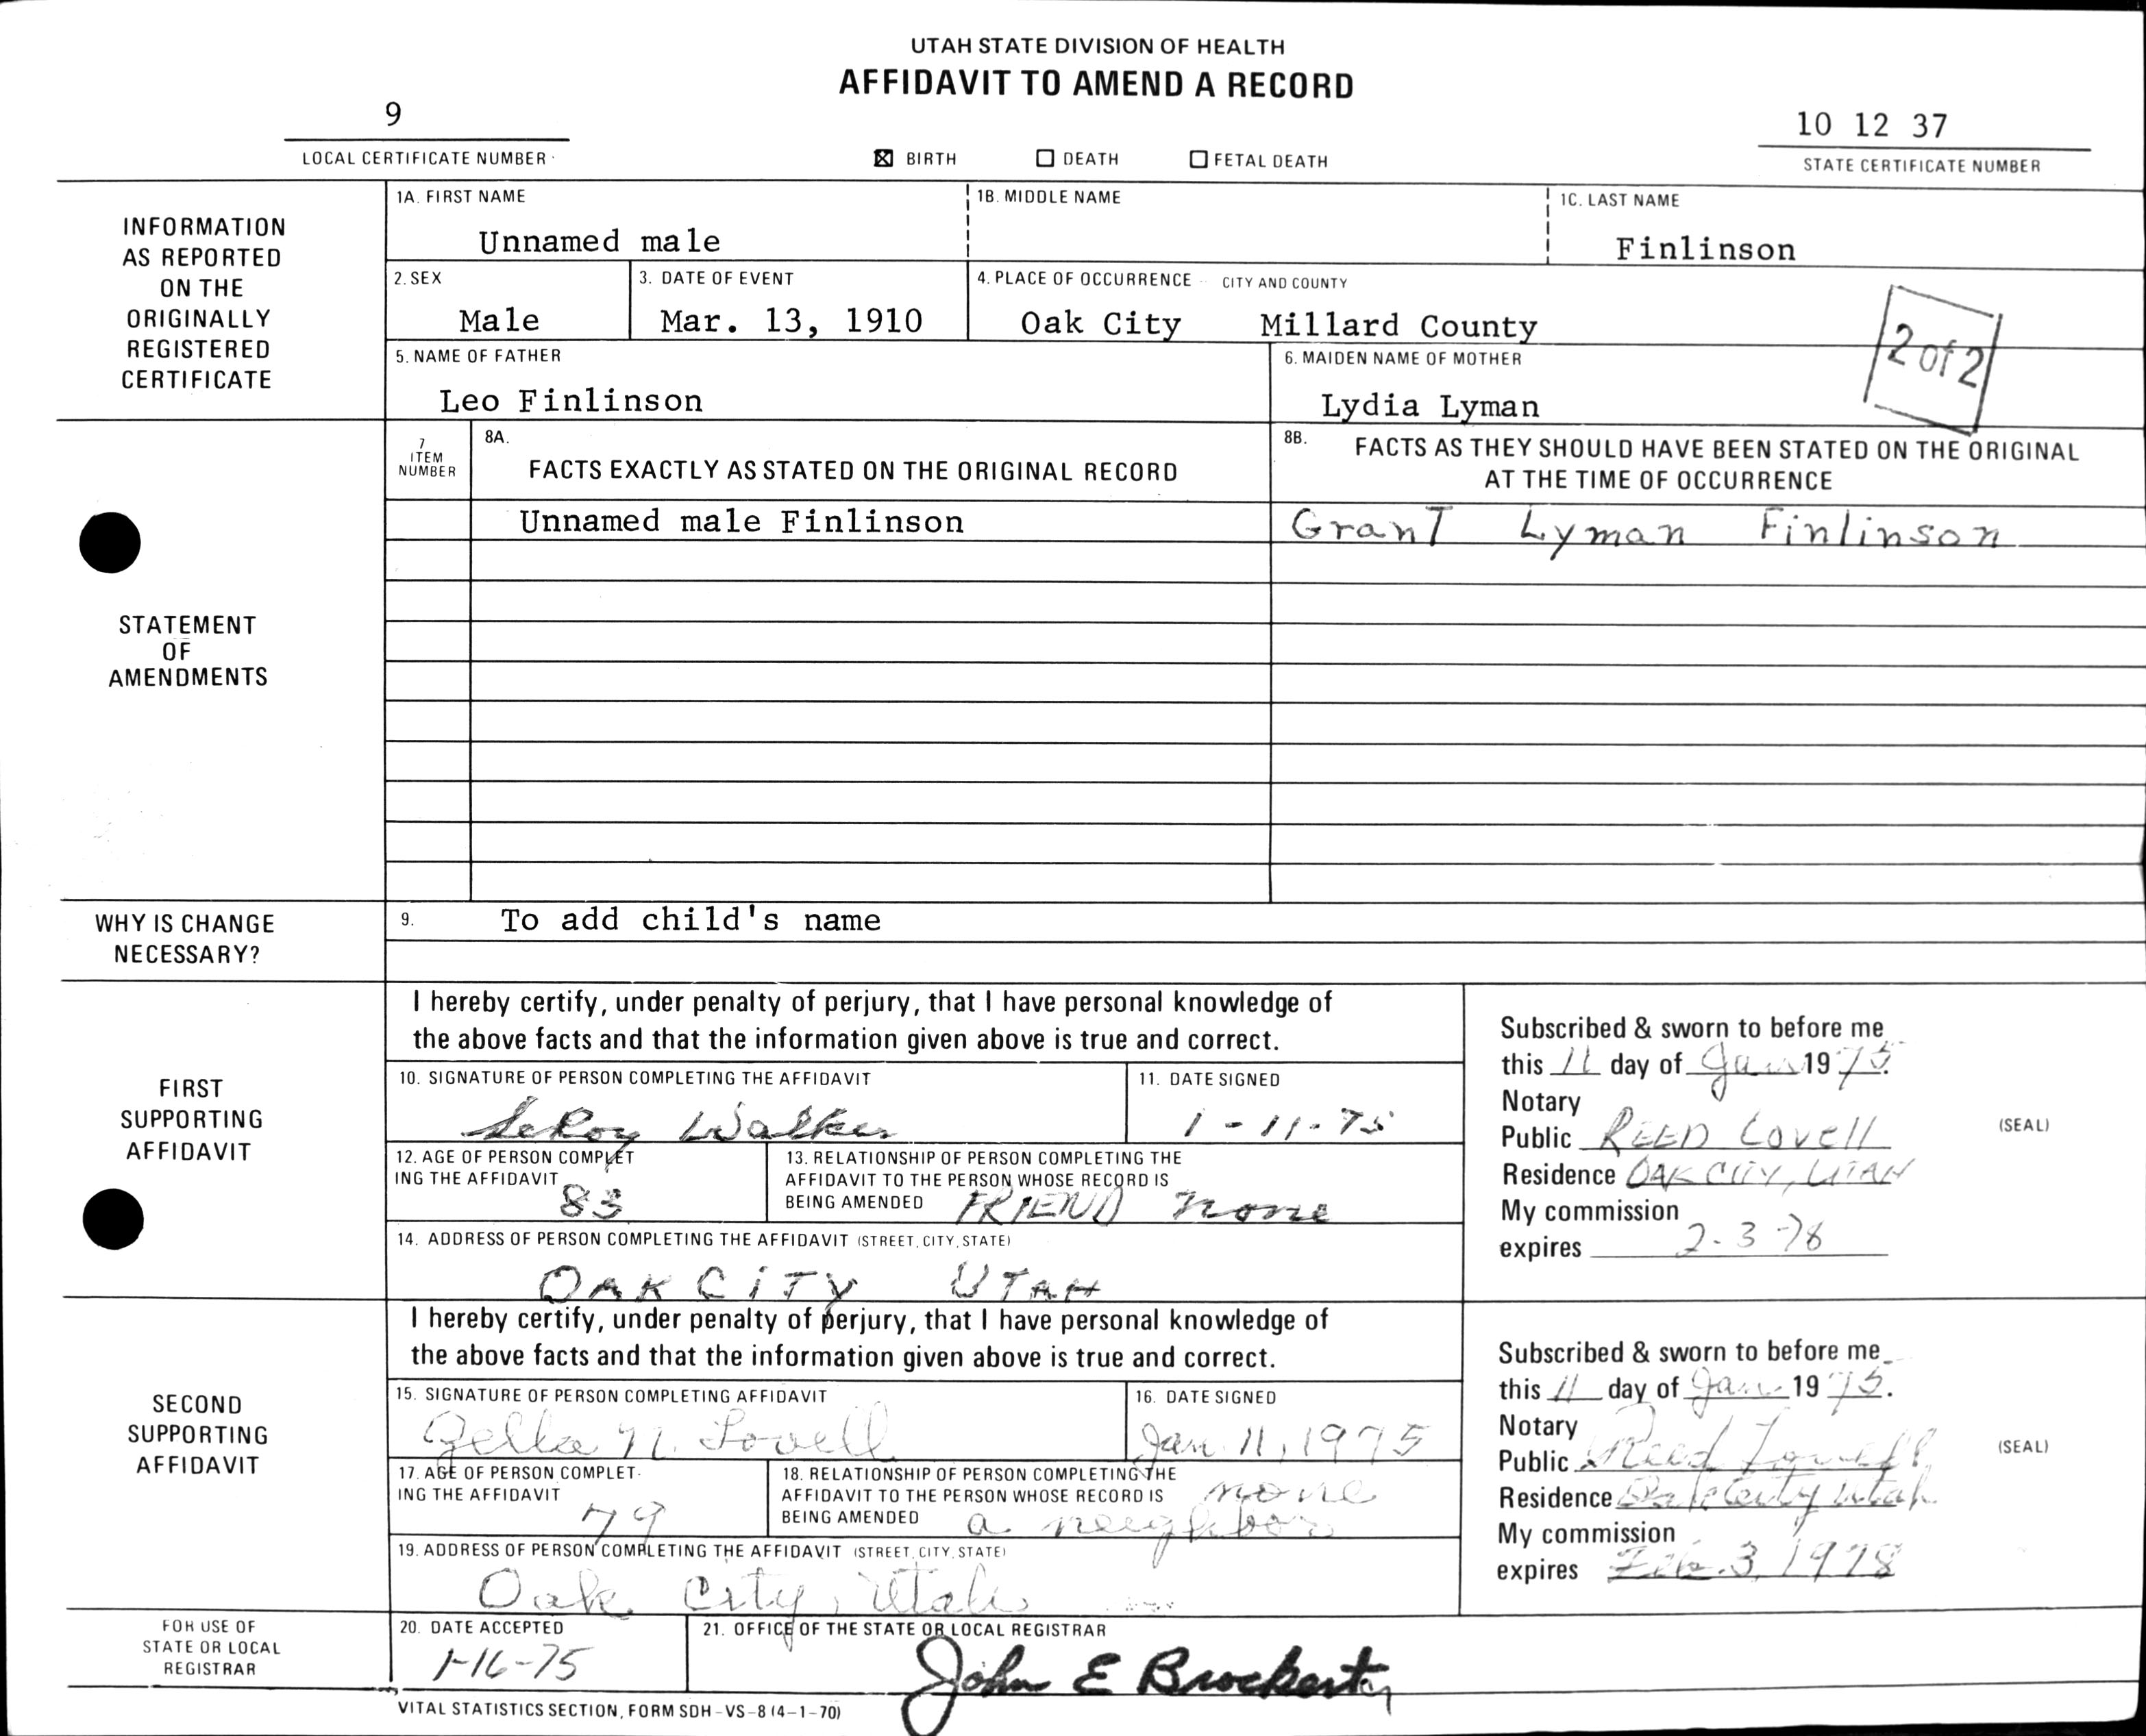 UTAH STATE DIVISION OF HEALTH
AFFIDAVIT TO AMEND A RECORD
9
10 12 37
LOCAL CERTIFICATE NUMBER
☒ BIRTH ☐ DEATH ☐ FETAL DEATH
STATE CERTIFICATE NUMBER
INFORMATION
AS REPORTED
ON THE
ORIGINALLY
REGISTERED
CERTIFICATE
1A. FIRST NAME
Unnamed male
1B. MIDDLE NAME
1C. LAST NAME
Finlinson
2. SEX
Male
3. DATE OF EVENT
Mar. 13, 1910
4. PLACE OF OCCURRENCE - CITY AND COUNTY
Oak City Millard County
2 of 2
5. NAME OF FATHER
Leo Finlinson
6. MAIDEN NAME OF MOTHER
Lydia Lyman
STATEMENT
OF
AMENDMENTS
7
ITEM
NUMBER
8A.
FACTS EXACTLY AS STATED ON THE ORIGINAL RECORD
8B. FACTS AS THEY SHOULD HAVE BEEN STATED ON THE ORIGINAL
AT THE TIME OF OCCURRENCE
Unnamed male Finlinson
Grant Lyman Finlinson
WHY IS CHANGE
NECESSARY?
9. To add child's name
FIRST
SUPPORTING
AFFIDAVIT
I hereby certify, under penalty of perjury, that I have personal knowledge of
the above facts and that the information given above is true and correct.
10. SIGNATURE OF PERSON COMPLETING THE AFFIDAVIT
LeRoy Walker
11. DATE SIGNED
1-11-75
12. AGE OF PERSON COMPLET
ING THE AFFIDAVIT
83
13. RELATIONSHIP OF PERSON COMPLETING THE
AFFIDAVIT TO THE PERSON WHOSE RECORD IS
BEING AMENDED FRIEND none
14. ADDRESS OF PERSON COMPLETING THE AFFIDAVIT (STREET, CITY, STATE)
OAK CITY UTAH
Subscribed & sworn to before me
this 11 day of Jan 1975.
Notary
Public REED Lovell
(SEAL)
Residence OAK CITY, UTAH
My commission
expires 2-3-78
SECOND
SUPPORTING
AFFIDAVIT
I hereby certify, under penalty of perjury, that I have personal knowledge of
the above facts and that the information given above is true and correct.
15. SIGNATURE OF PERSON COMPLETING AFFIDAVIT
Zella N. Lovell
16. DATE SIGNED
Jan. 11, 1975
17. AGE OF PERSON COMPLET-
ING THE AFFIDAVIT
79
18. RELATIONSHIP OF PERSON COMPLETING THE
AFFIDAVIT TO THE PERSON WHOSE RECORD IS none
BEING AMENDED a neighbor
19. ADDRESS OF PERSON COMPLETING THE AFFIDAVIT (STREET, CITY, STATE)
Oak City, Utah
Subscribed & sworn to before me
this 11 day of Jan. 1975.
Notary
Public Reed Lovell
(SEAL)
Residence Oak City Utah
My commission
expires Feb. 3, 1978
FOR USE OF
STATE OR LOCAL
REGISTRAR
20. DATE ACCEPTED
1-16-75
21. OFFICE OF THE STATE OR LOCAL REGISTRAR
John E Brockert
VITAL STATISTICS SECTION, FORM SDH-VS-8 (4-1-70)